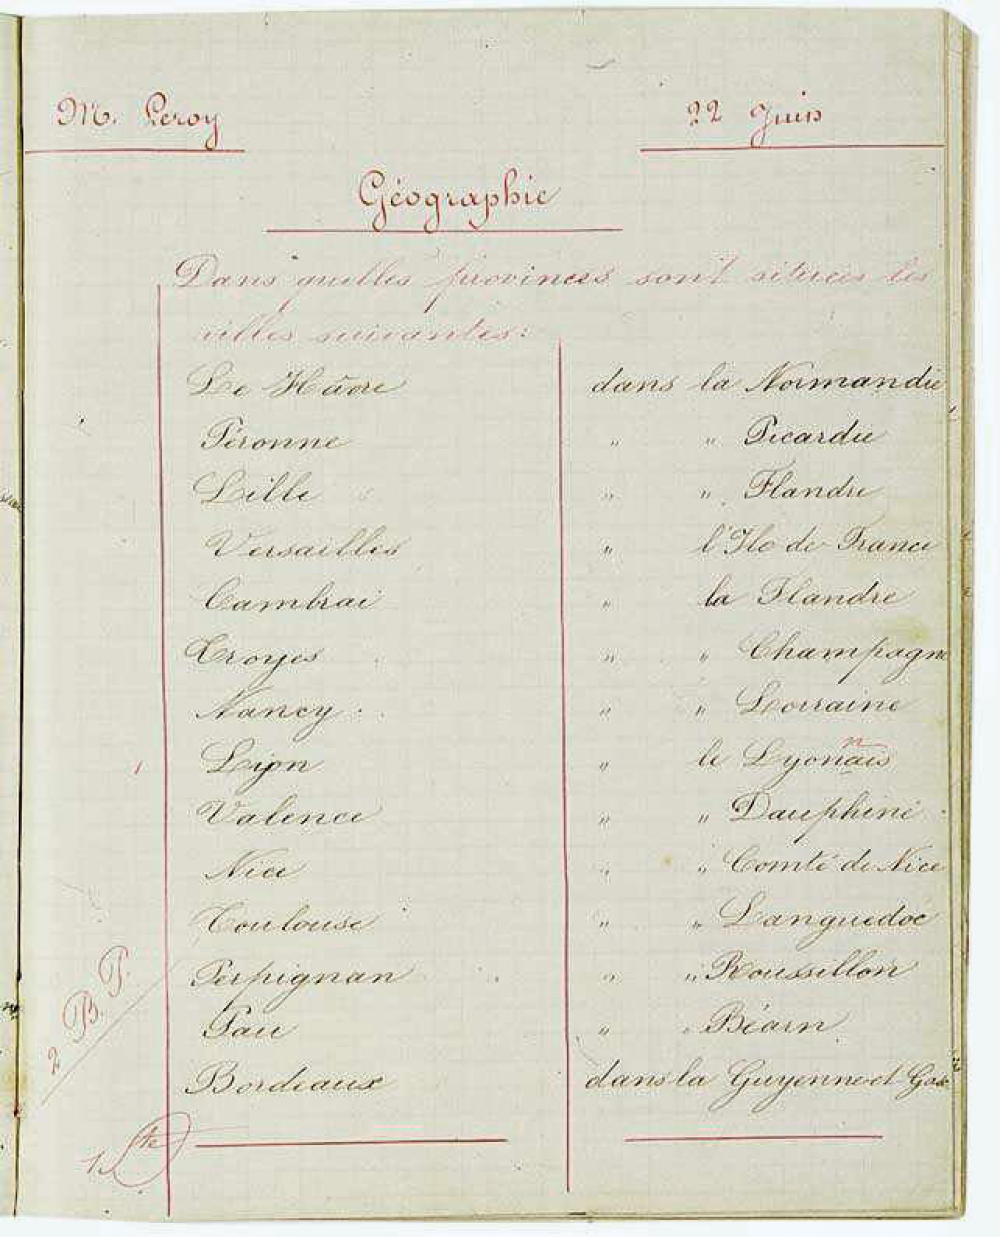 M. Leroy 22 Juin
Géographie
Dans quelles provinces sont situées les
villes suivantes:
Le Hâvre dans la Normandie
Péronne " " Picardie
Lille " " Flandre
Versailles " l'Ile de France
Cambrai " la Flandre
Troyes " " Champagne
Nancy " " Lorraine
Lyon " le Lyonais
n
Valence " " Dauphiné
Nice " " Comté de Nice
Toulouse " " Languedoc
Perpignan " " Roussillon
Pau " " Béarn
Bordeaux dans la Guyenne et Gas
2 B. P.